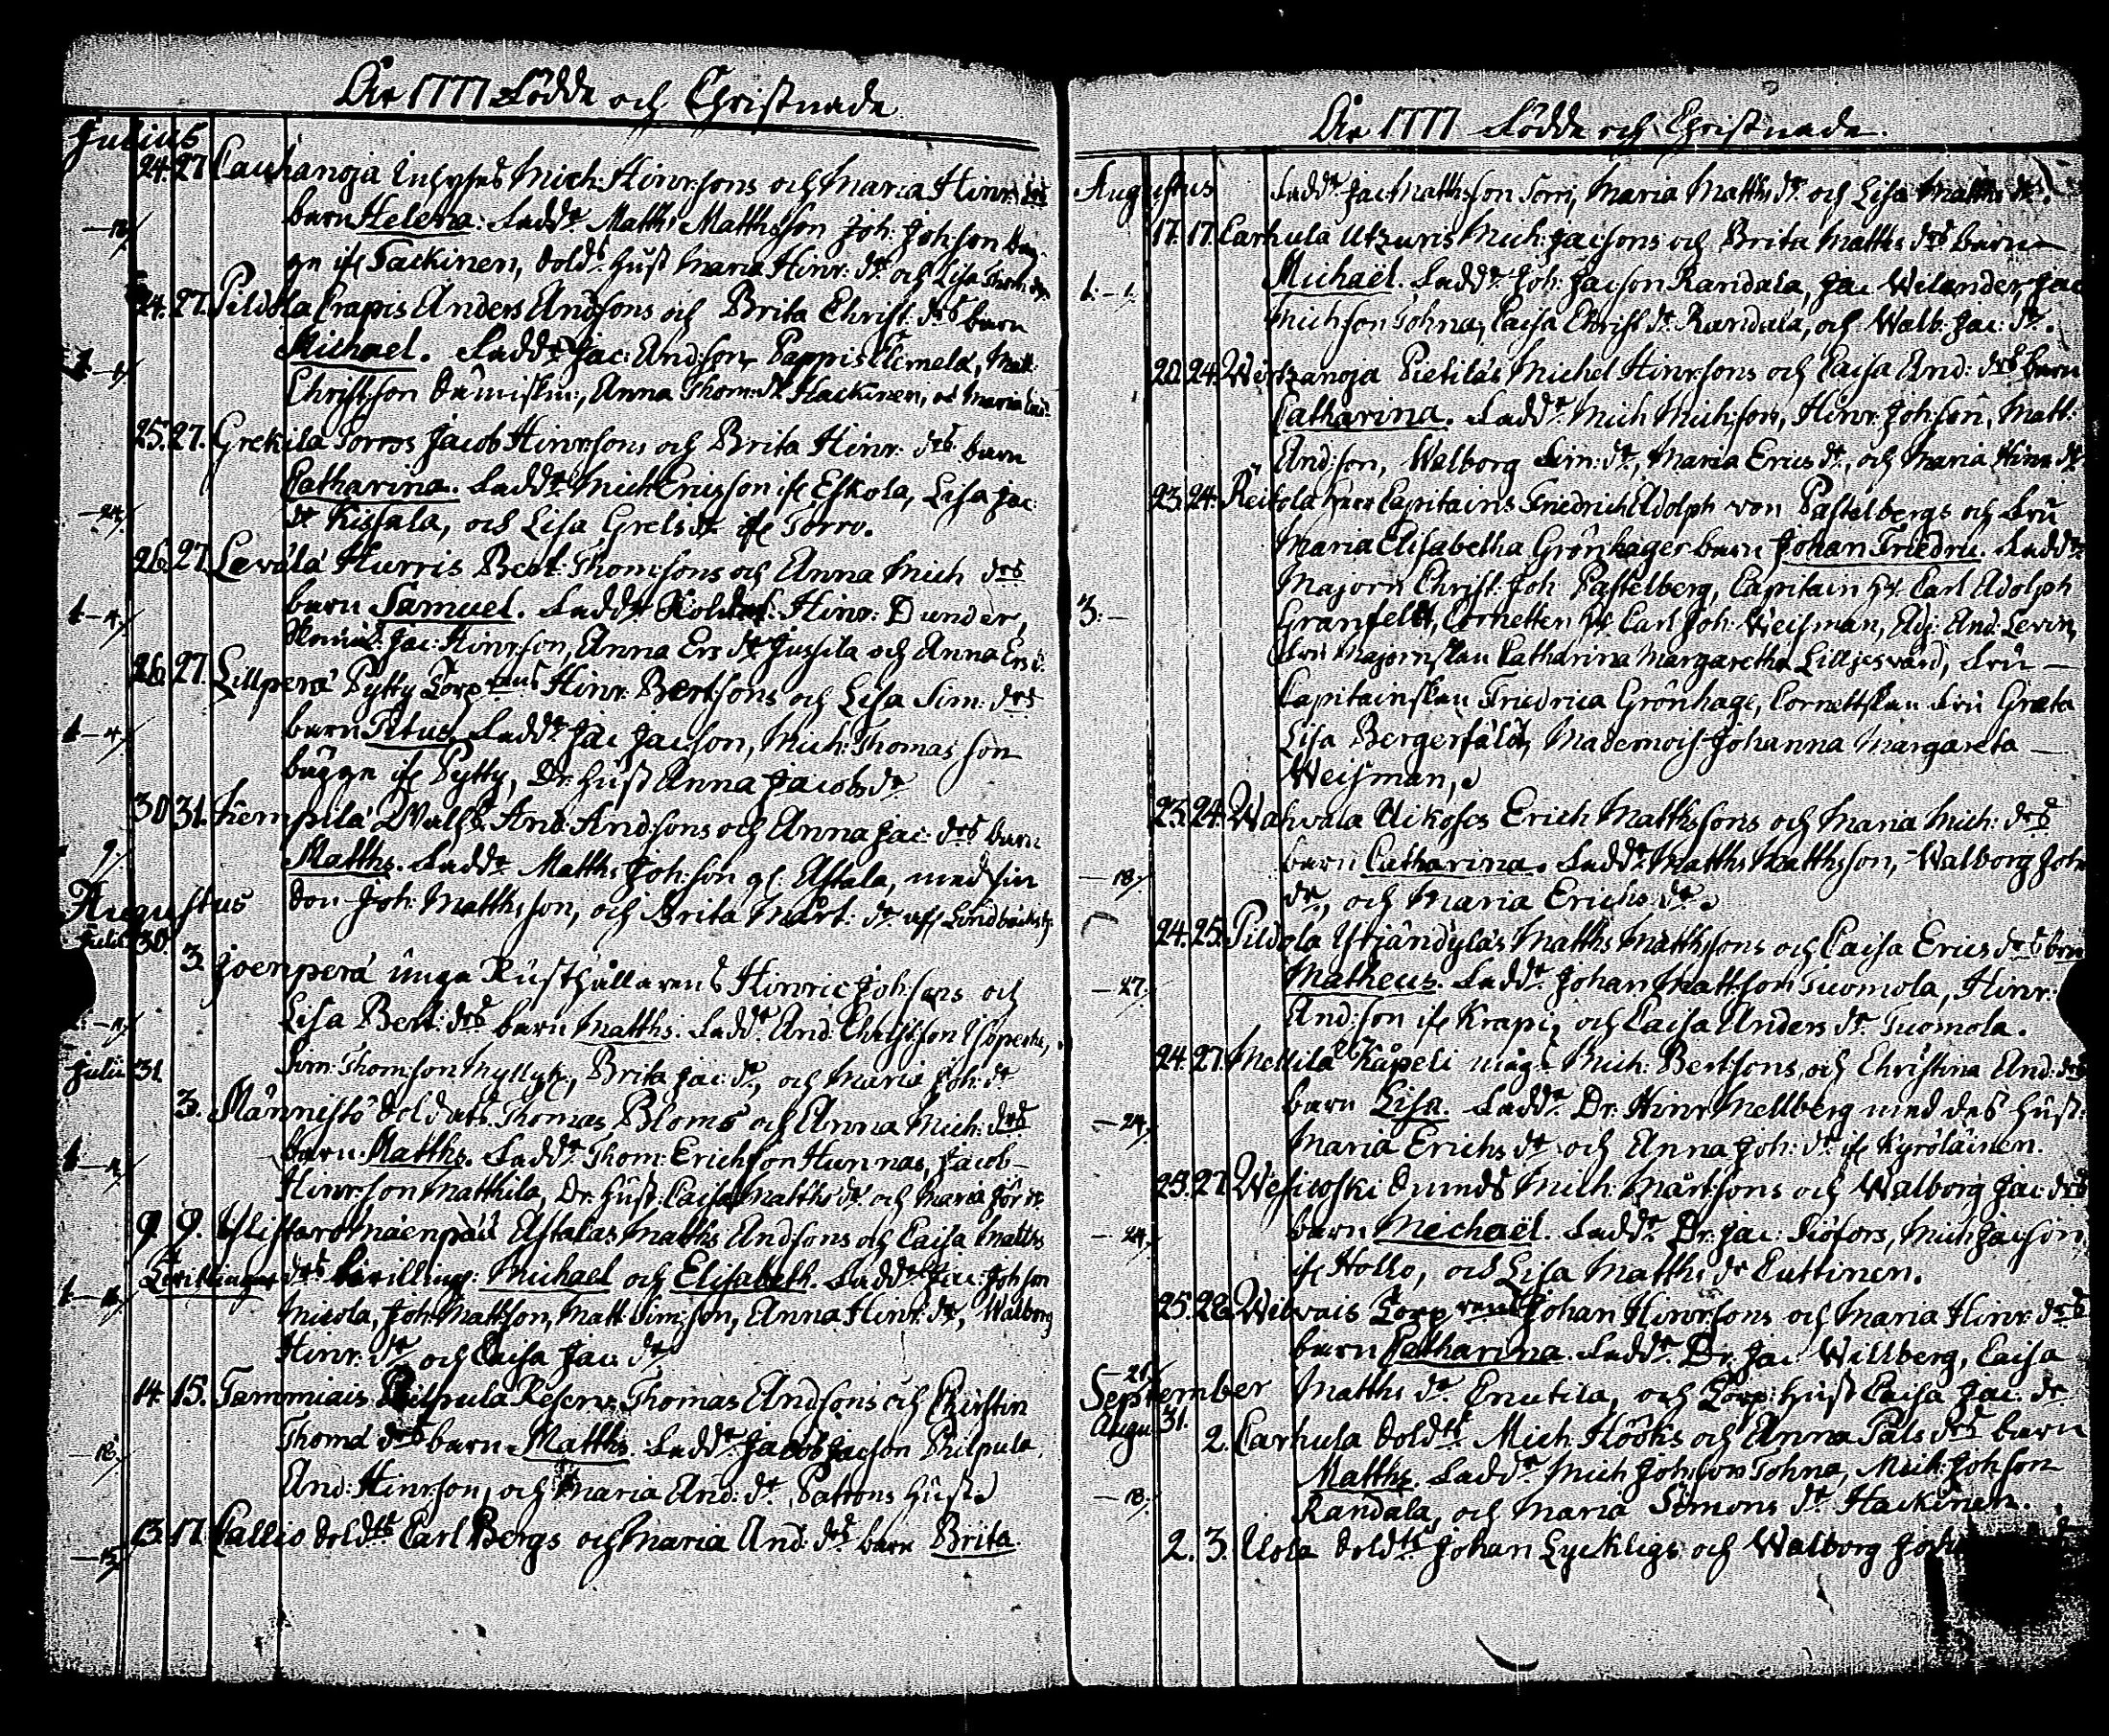 År 1777 Födde och Christnade
Julius
24. 27 Cauhanoja Mich: Hinr:sons och Maria Hinr: drs
barn Helena. Fadd:r Matths Matthsson Joh: Joh:son
ifr Sackinen, Sold:s Hust Maria Hinr: dr och Lisa
24. 27. Pildola Crapis Anders And:sons och Brita Christ: drs barn
Michael. Fadd:r Jac: And:son, Pappis Elimelä, Matt:
Christ:son, Anna Thom: dr Hackinen, och Maria
25. 27. Grekila Torros Jacob Hinr:sons och Brita Hinr: drs barn
Catharina. Fadd:r Mich Ericsson ifr Eskola, Lisa Jac:
dr Kissala, och Lisa Grels dr ifr Torro.
26. 27 Levälä Hurris Bert: Thom:sons och Anna Mich drs
barn Samuel. Fadd:r Hinr: Dunder,
Jac: Hinr:son, Anna Ers dr Jussila och Anna Ers d:
26 27. Lillperä Pytty Torp:ens Hinr: Bert:sons och Lisa Sim: drs
barn Petus. Fadd:r Jac Jac:son, Mich: Thomas son
bägge ifr Pytty, Dr. Hust Anna Jacobs dr
30 31. Kempilä And: And:sons och Anna Jac: drs barn
Matths. Fadd:r Matths Joh:son ifr Astala, med sin
Son Joh: Matthsson, och Brita Mårt: dr
Augustus
Julii 30.
3. Joenperä unga Rusthållarens Hinric Joh:sons och
Lisa Bert: drs barn Matths. Fadd:r And: Christ:son
Sim: Thom:son, Brita Jac: dr, och Maria Joh: dr
Julii 31.
3. Männistö Soldats Thomas Bloms och Anna Mich: drs
barn Matths. Fadd:r Thom: Erichson Hunnas, Jacob
Hinr:son Matthila, Dr: Hust: Caisa Matths dr och Maria
9. 9. Ylistaro Mäenpää Astalas Matths And:sons och Caisa Matths
Tvillingar drs tvilling: Michael och Elisabeth. Fadd:r Jac: Joh:son
Micola, Joh: Mattson, Matt: Sim:son, Anna Hinr: dr, Walborg
Hinr: dr och Caisa Jac: dr
14. 15. Tammiais Pilpula Reserv: Thomas And:sons och Christin
Thoma drs barn Matths. Fadd:r Jacob Jac:son Philpula,
And: Hinr:son, och Maria And: dr, Patrons Hust
13. 17 Callio Sold:ts Carl Bergs och Maria And: drs barn Brita.
År 1777 Födde och Christnade.
Augustus Fadd:r Jac: Matthsson Torri, Maria Matths dr och Lisa Matths dr.
17. 17. Carhula Utzuris Mich: Jac:sons och Brita Matths drs barn
Michaël. Fadd:r Joh: Jac:son Randala, Jac Wilander, Jac
Mich:son Tohna, Caisa Christ: dr Randala, och Walb: Jac: dr.
20. 24. Wirtzanoja Pietiläs Michel Hinr:sons och Caisa And: drs barn
Catharina. Fadd:r Mich Mich:son, Hinr: Joh:son, Matt:
And:son, Walborg Sim: dr, Maria Erics dr, och Maria Hinr dr
23. 24. Reitola Herr Capitains Friedrich Adolph von Pastelbergs och Fru
Maria Elisabetha Grönhagen barn Johan Friedric. Fadd:r
Majorn Christ: Joh: Pastelberg, Capitain Hr: Carl Adolph
3. Granfelt, Cornetten Hr Carl Joh: Weisman, Adj: And: Levin,
Fru Majorskan Catharina Margaretha Lilljesvärd, Fru
Capitainskan Friedrica Grönhagen, Cornettskan Fru Greta
Lisa Bergerfält, Mademois: Johanna Margareta
Weisman,
23. 24. Wahvala Uikoses Erich Matthssons och Maria Mich: drs
barn Catharina. Fadd:r Matths Matthsson, Walborg Joh:
dr, och Maria Erichs dr.
24. 25. Pildola Yrjändyläs Matths Matthssons och Caisa Erics drs barn
Matheus. Fadd:r Johan Matt:son Tuomola, Hinr:
And:son ifr Krapi, och Caisa Anders dr Tuomola.
24. 27. Mellilä Kåpeli mågs Mich: Bert:sons, och Christina And: drs
barn Lisa. Fadd:r Dr: Hinr Mellberg med des Hust:
Maria Erichs dr och Anna Joh: dr ifr Kyröläinen.
23. 27. Wesikoski Sunds Mich: Mårt:sons och Walborg Jac: drs
barn Michaël. Fadd:r Dr: Jac: Siöfors, Mich: Jac:son
ifr Hollo, och Lisa Matths dr Euttinen.
25. 28. Wilvais Torp:rens Johan Hinr:sons och Maria Hinr: drs
barn Catharina. Fadd:r Dr: Jac: Willberg, Caisa
September Matths dr Enutila, och Torp: Hust Caisa Jac: dr
Augu: 31.
2. Carhula Sold:ts Mich: Hööks och Anna Påls drs barn
Matths. Fadd:r Mich Joh:son Tohna, Mich: Joh:son
Randala, och Maria Simons dr Hackinen.
2. 3. Uola Sold:ts Johan Lyckligs och Walborg